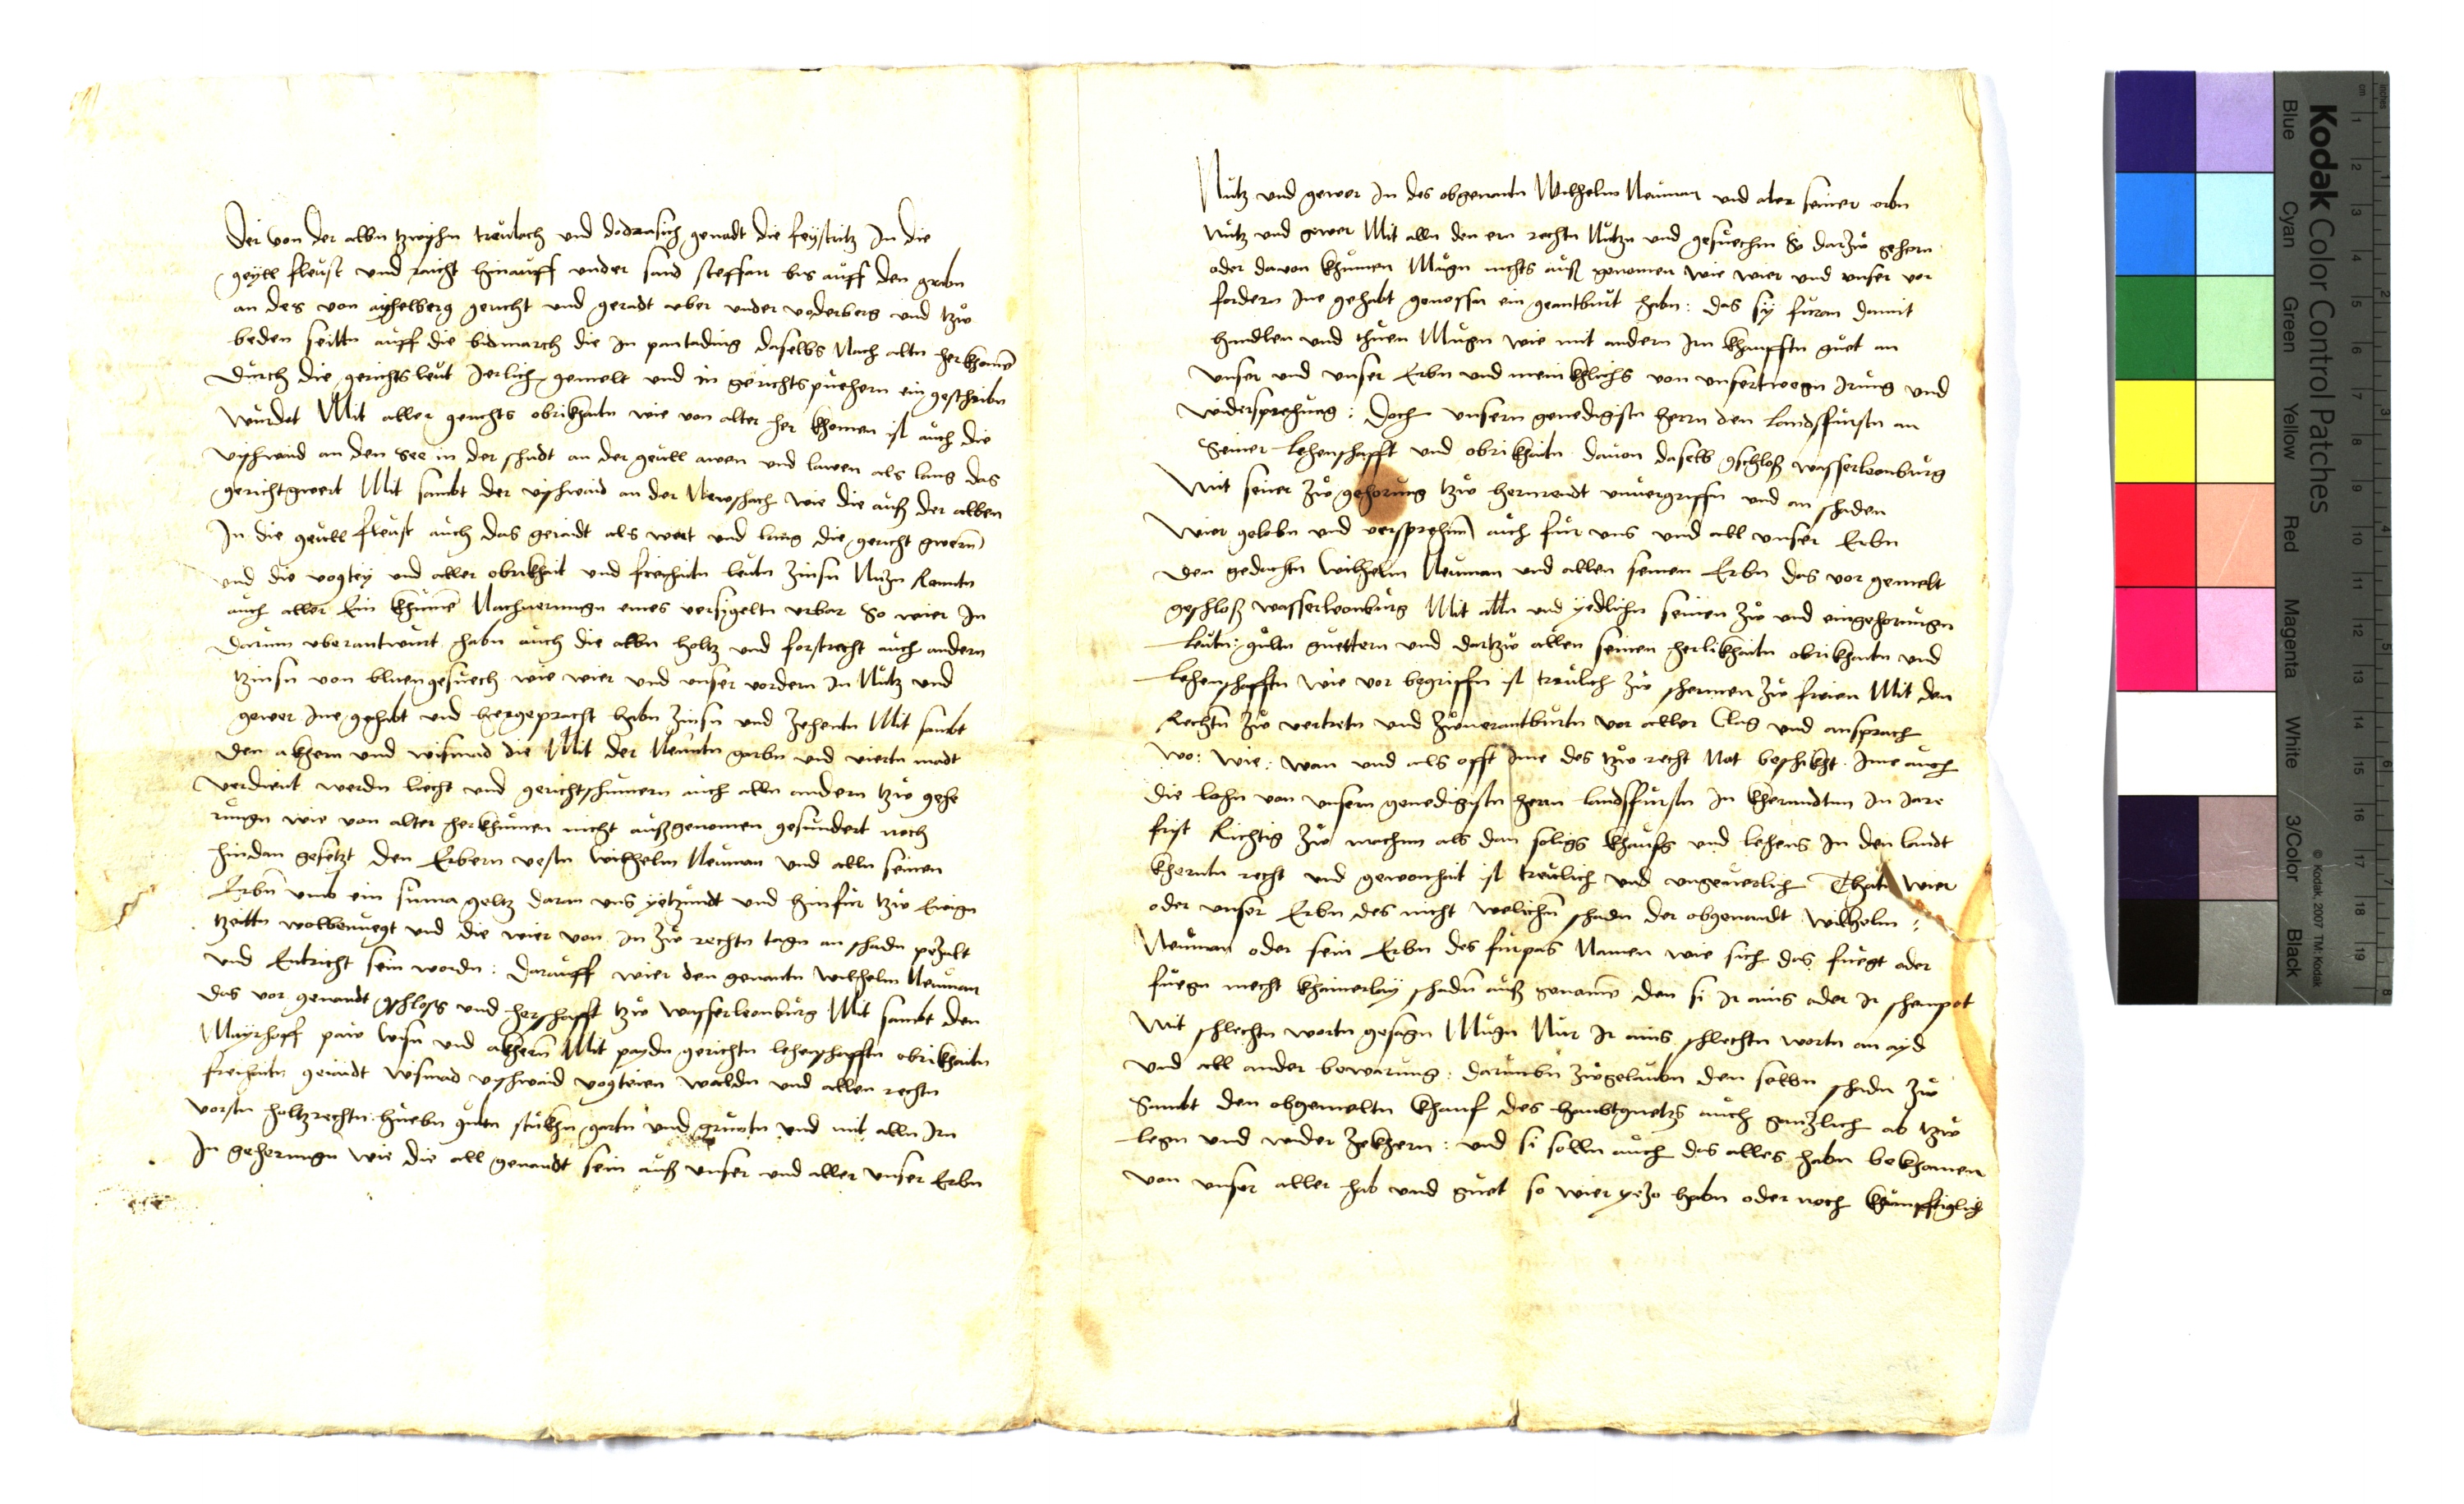 Der von der albn tzwyschn treulach und dodrasich genadt die feystritz In die
geyll fleust und raicht hinauff under sand steffan bis auff den grabn
an des von aychelberg gericht und geradt uber under voderberg und tzw
beden seittn auff die bidmarch die In pantading daselbs Nach altn herkhomē
durch die gerichtsleut Jerlich gemelt und in gerichtspuehern ein geschribn
wurdet Mit aller gerichts obrikhaitn wie von alter her khomen ist auch die
vyschwaid an den See in der schudt an der geull awen und lawen als lang das
gericht gwert Mit sambt der vyschwaid an der Newschach wie die auß der albm
In die geull fleust auch das geiaidt als weit und lang die gericht gwern
und die vogtey und aller obrikhait und freihaitn leutn Zinsn Nuzn Renntn
auch aller Ein khumē Nachuerungn eines versigeltn urbar So wier In
darum uberantwurt habn auch die albn holtz und forstrecht auch andern
tzinsn von bluemgesuech wie wier und unser vordern In Nutz und
gewer Ine gehabt und hergepracht habn Zinsn und Zehentn Mit sambt
den akhern und wismad die Mit der Neuntn garbn und viertn madt
verdient werdn liecht und gerichtshuenern auch alln andern tzw gehe
rungn wie von alter herkhumen nicht außgenomen gesundert noch
hindan gesetzt den Erbern vestn wilhelm Neuman und alln seinen
Erbn umb ein suma geltz darin uns yetzundt und hinfur tzw Ewign
tzeittn wolbenuegt und die wier von In zw rechtn tagn an schadn pezalt
und Entricht sein wordn: darauff wier den genantn wilhelm Neuman
das vor genandt gschloss und herschafft tzw wasserleonburg Mit sambt den
Mayrhoff paw wisn und akhern Mit paydn gerichtn lehenschafftn obrikhaitn
freihaitn geiaidt wismad vyschwaid vogteien waldn und allen rechtn
vorstn holtzrechtn huebn gultn stukhn gartn und gruntn und mit alln Irn
In geherungn wie die all genandt sein auß unser und aller unser Erbn
Nutz und gewer In des obgenantn Wilhelm Neuman und aler seiner erbn
Nutz und gewer Mit alln den ern rechtn Nutzn und gesuechn So darzw gehern
oder davon khumen Mugn nichts auß genomen wie wier und unser vor
fordern Ine gehabt genossn ein geantburt habn: das sy furan damit
handlen und thuen Mugn wie mit andern Irn khaufftn guet an
unser und unser Erbn und meinikhlichs von unsertwegn Irung und
widersprechung: Doch unsern genedigistn herrn den landsfurstn an
Seiner lehenschafft und obrikhaitn davon daselb gschloß wasserleonburg
Mit seiner zw gehorung tzw herruerndt unvergriffn und an schaden
Wier gelobn und versprechen auch fur uns und all unser Erbn
den gedachtn wilhelm Neuman und allen seinen Erbn das vor gemelt
geschloß wasserleonburg Mit alln und yedlichn seinen zw und eingehorungn
leutn: gultn guettern und dartzw allen seinen herlikhaitn obrikhaitn und
lehenschafftn wie vor begriffn ist treulich zw schermen zw freien Mit den
Rechtn zw vertretn und zwuerantburtn vor aller Clag und ansprach
wo: wie: wan und als offt Ime des tzw recht Not beschikht Ime auch
die lehn von unsern genedigistn herrn landsfurstn In kherndtnn In Jare
frist Richtig zw machnn als dan soligs khaufs und lehens In den landt
kherntn recht und gewonhait ist treulich und ungeuerlich Thatn wier
oder unser Erbn des nicht welichn schadn der obgenandt wilhelm
Neuman oder sein Erbn des furpas Namen wie sich das fuegt oder
fuegn mecht khainerlay schadn auß genomē den si Ir ains oder Ir schempot
Mit schlechtn wortn gesagn Mugn Nur Ir ains schlechtn wortn an ayd
und all ander bewarung: darumbn zwgelaubn den selbn schadn zw
Sambt den obgemeltn khauf des haubtguetzs auch genzlich ab tzw
legn und wider zekhern: und si solln auch das alles habn bekhomen
von unser aller hab und guet so wier yezo habn oder noch khunfftiglich